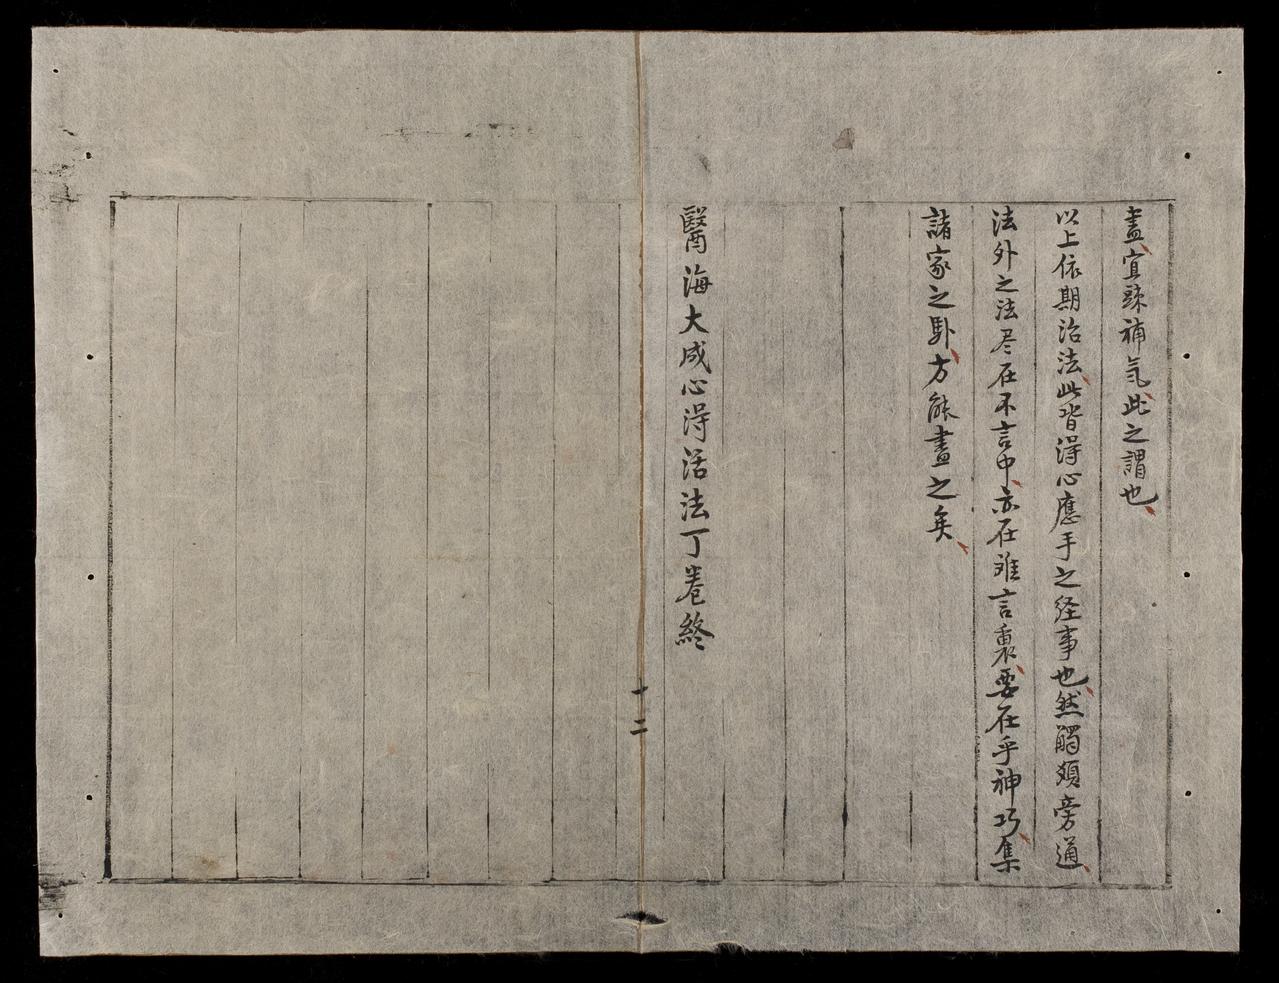 盡、宜疎補氣、此之謂也、
以上依期治法、此皆淂心應手之経事也、然觸類旁通、
法外之法尽在不言中、亦在难言裏、要在乎神巧、集
諸家之卧、方能盡之矣、
醫海大成心淂活法丁卷終
十二